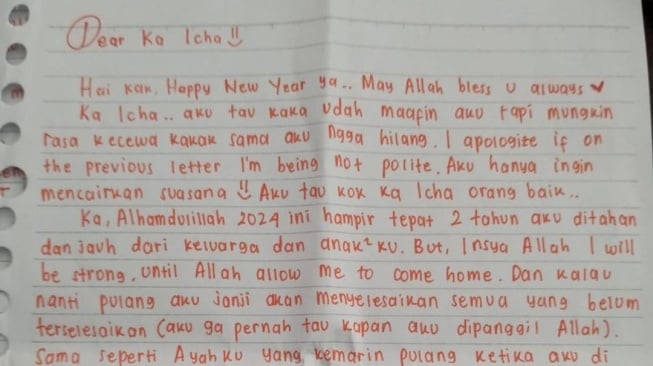 Dear Ka Icha !!
Hai kak, Happy New Year ya.. May Allah bless u always ♥
Ka Icha.. aku tau kaka udah maafin aku tapi mungkin
rasa kecewa kakak sama aku ngga hilang. I apologize if on
the previous letter I'm being not polite. Aku hanya ingin
mencairkan suasana !! Aku tau kok Ka Icha orang baik..
Ka, Alhamdulillah 2024 ini hampir tepat 2 tahun aku ditahan
dan jauh dari keluarga dan anak² ku. But, Insya Allah I will
be strong, until Allah allow me to come home. Dan kalau
nanti pulang aku janji akan menyelesaikan semua yang belum
terselesaikan (aku ga pernah tau kapan aku dipanggil Allah).
Sama seperti Ayah ku yang kemarin pulang ketika aku di